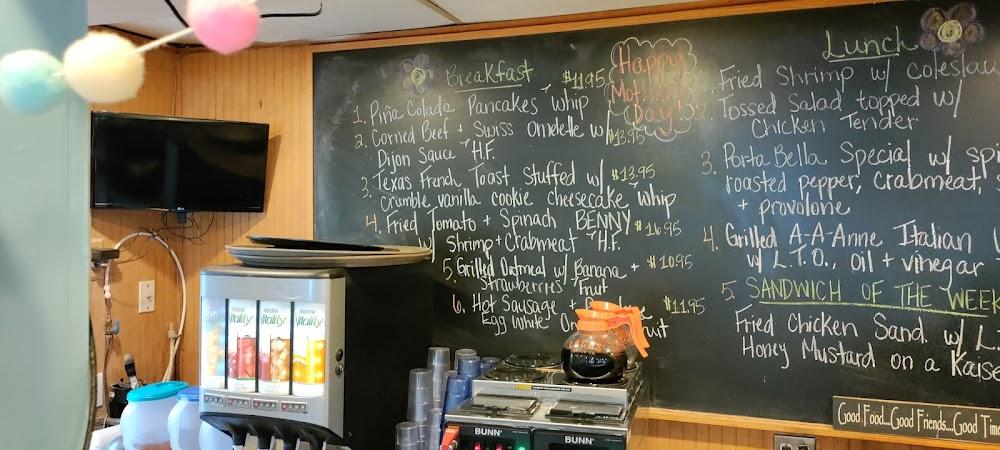 Breakfast
Happy
Mother's
Day!
1. Piña Colada Pancakes whip $11.95
2. Corned Beef + Swiss Omelette w/ $13.95
Dijon Sauce H.F.
3. Texas French Toast Stuffed w/ $13.95
Crumble vanilla cookie cheesecake whip
4. Fried Tomato + Spinach BENNY $16.95
w/ Shrimp + Crabmeat H.F.
5. Grilled Oatmeal w/ Banana + $10.95
Strawberries Fruit
6. Hot Sausage + $11.95
Egg White
Lunch
Fried Shrimp w/ coleslaw
2. Tossed Salad topped w/
Chicken Tender
3. Porta Bella Special w/
roasted pepper, crabmeat,
+ provolone
4. Grilled A-A-Anne Italian
w/ L.T.O., oil + vinegar
5. SANDWICH OF THE WEEK
Fried Chicken Sand. w/ L.
Honey Mustard on a Kaise
Good Food...Good Friends...Good Time
Vitality Vitality Vitality
BUNN BUNN